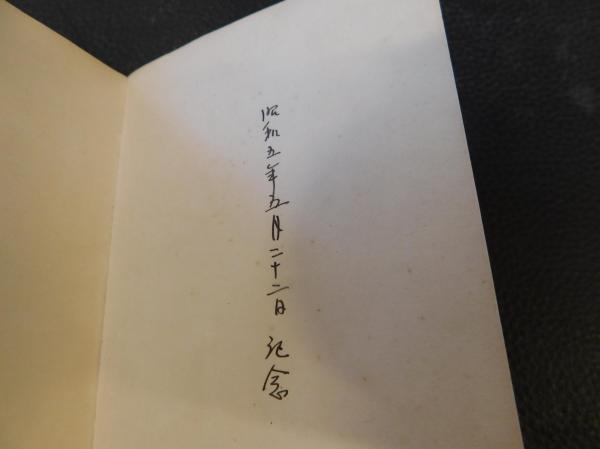 昭和五年五月二十二日 記念